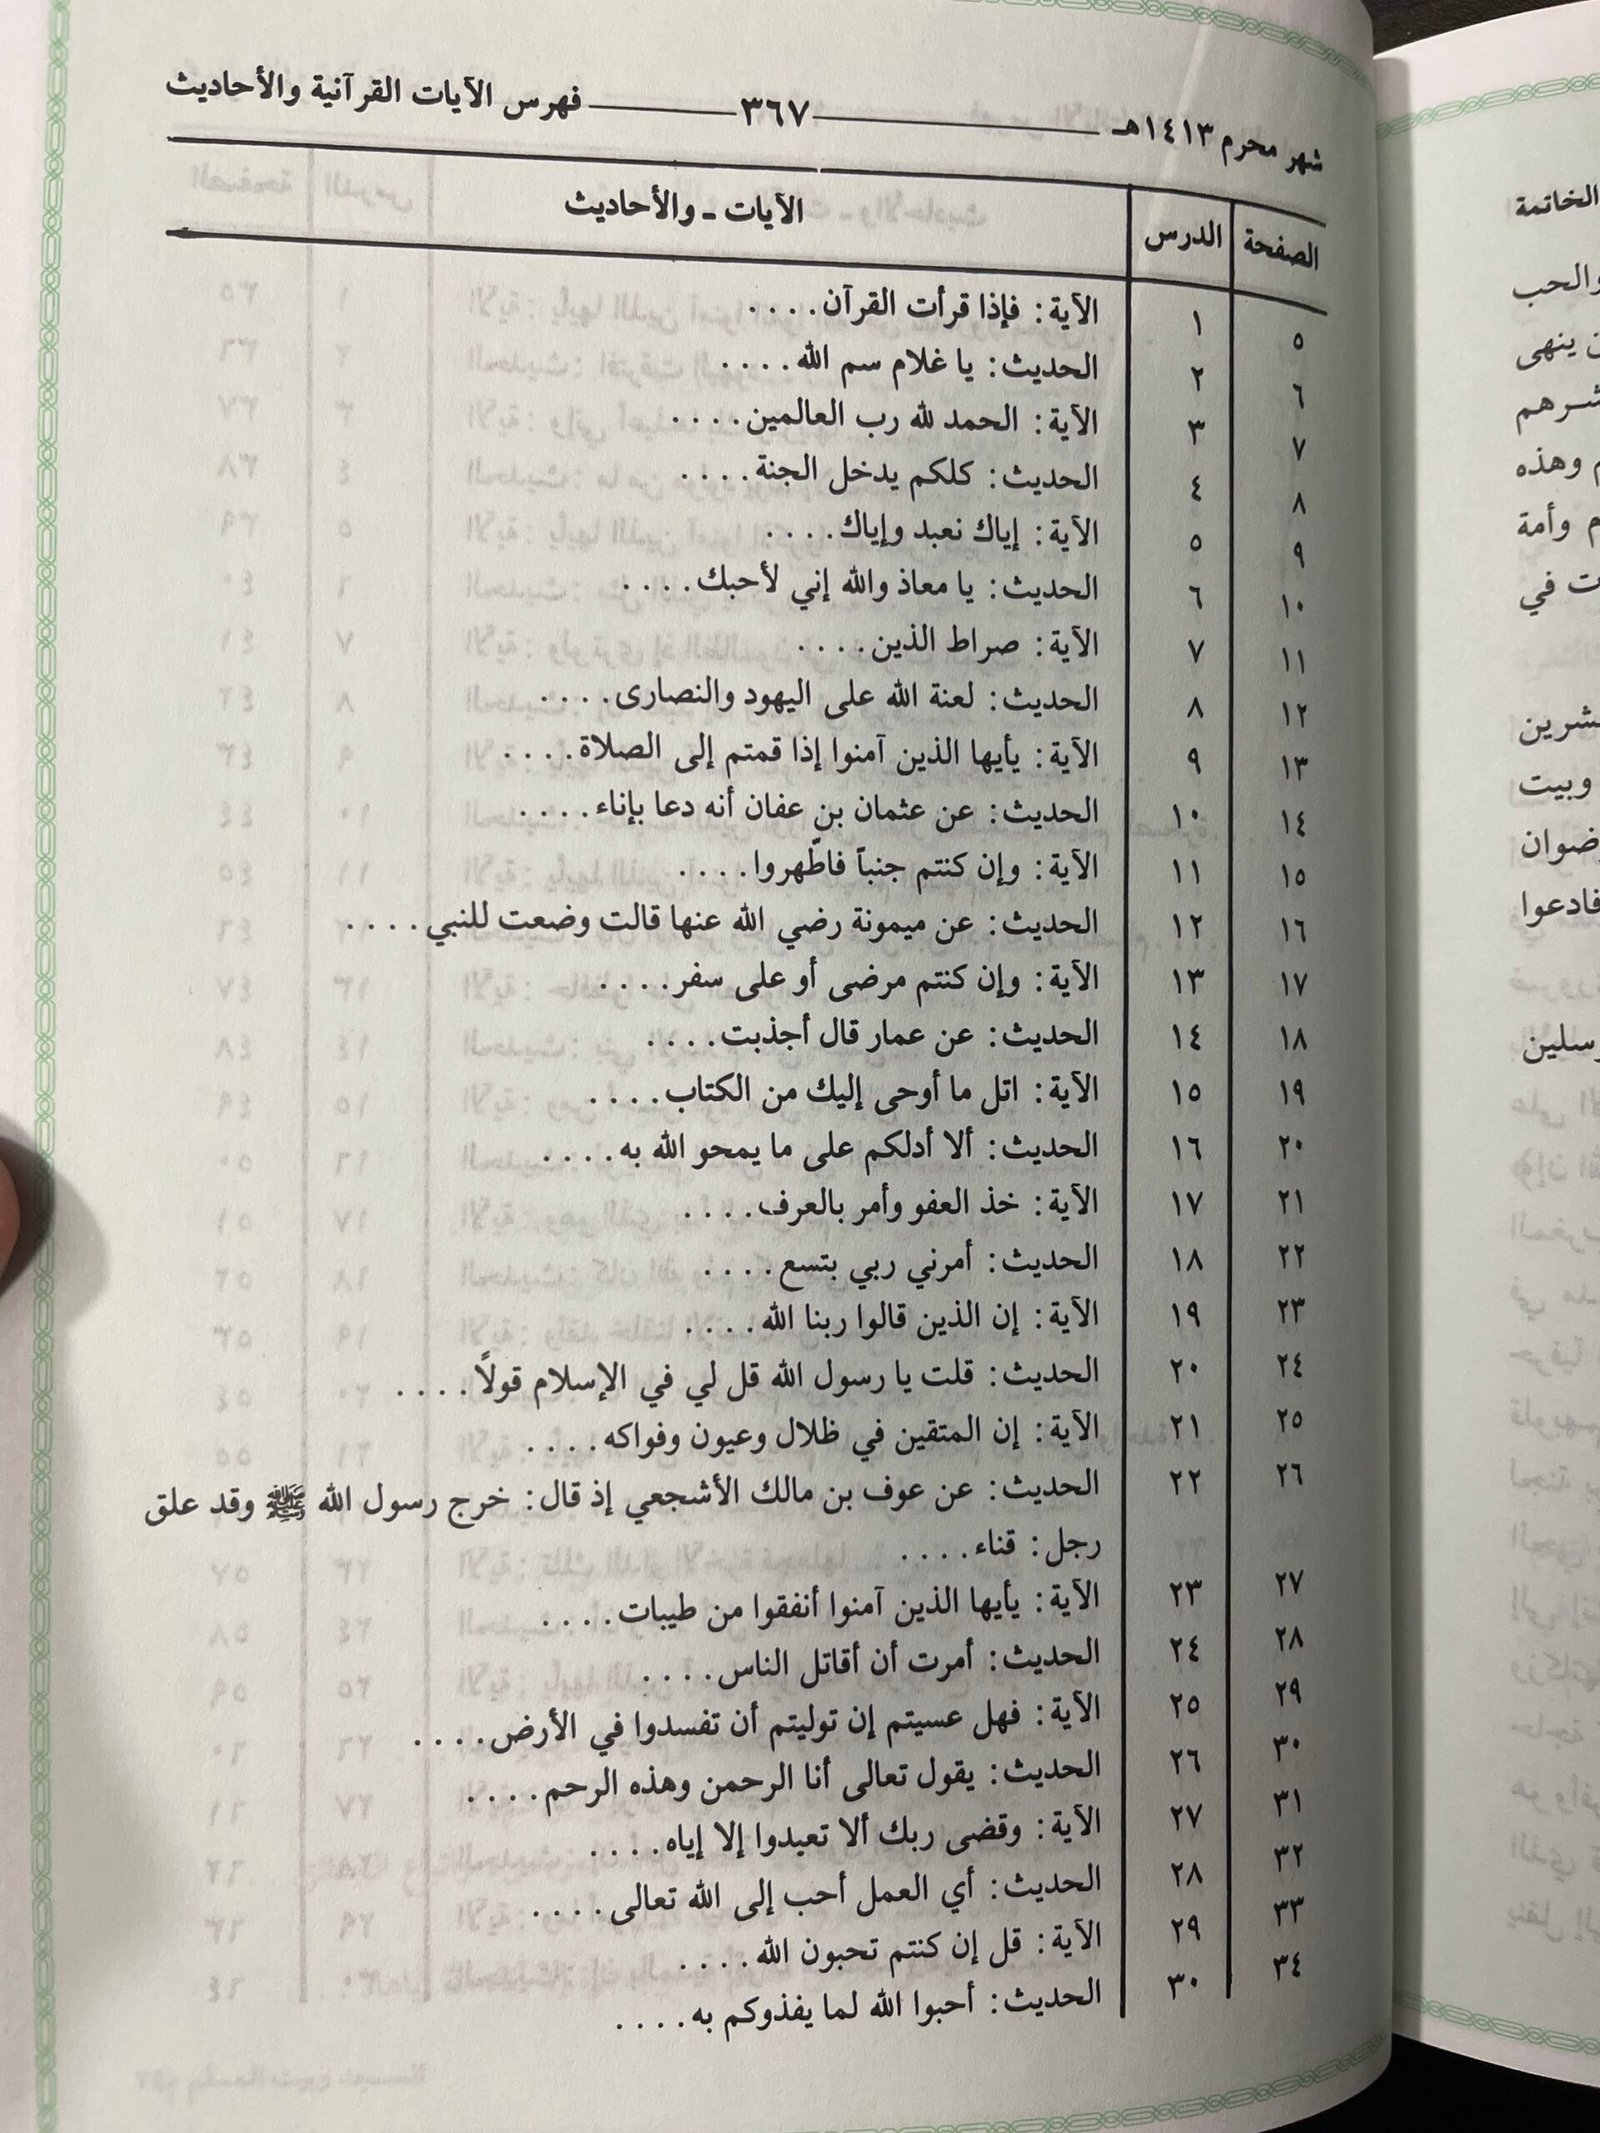 شهر محرم ١٤١٣هـ ٣٦٧ فهرس الآيات القرآنية والأحاديث
الصفحة الدرس الآيات - والأحاديث
٥ ١ الآية: فإذا قرأت القرآن. . . .
٦ ٢ الحديث: يا غلام سم الله. . . .
٧ ٣ الآية: الحمد لله رب العالمين. . . .
٨ ٤ الحديث: كلكم يدخل الجنة. . . .
٩ ٥ الآية: إياك نعبد وإياك. . . .
١٠ ٦ الحديث: يا معاذ والله إني لأحبك. . . .
١١ ٧ الآية: صراط الذين. . . .
١٢ ٨ الحديث: لعنة الله على اليهود والنصارى. . . .
١٣ ٩ الآية: يأيها الذين آمنوا إذا قمتم إلى الصلاة. . . .
١٤ ١٠ الحديث: عن عثمان بن عفان أنه دعا بإناء. . . .
١٥ ١١ الآية: وإن كنتم جنباً فاطّهروا. . . .
١٦ ١٢ الحديث: عن ميمونة رضي الله عنها قالت وضعت للنبي. . . .
١٧ ١٣ الآية: وإن كنتم مرضى أو على سفر. . . .
١٨ ١٤ الحديث: عن عمار قال أجذبت. . . .
١٩ ١٥ الآية: اتل ما أوحى إليك من الكتاب. . . .
٢٠ ١٦ الحديث: ألا أدلكم على ما يمحو الله به. . . .
٢١ ١٧ الآية: خذ العفو وأمر بالعرف. . . .
٢٢ ١٨ الحديث: أمرني ربي بتسع. . . .
٢٣ ١٩ الآية: إن الذين قالوا ربنا الله. . . .
٢٤ ٢٠ الحديث: قلت يا رسول الله قل لي في الإسلام قولاً. . . .
٢٥ ٢١ الآية: إن المتقين في ظلال وعيون وفواكه. . . .
٢٦ ٢٢ الحديث: عن عوف بن مالك الأشجعي إذ قال: خرج رسول الله ﷺ وقد علق
رجل: قناء. . . .
٢٧ ٢٣ الآية: يأيها الذين آمنوا أنفقوا من طيبات. . . .
٢٨ ٢٤ الحديث: أمرت أن أقاتل الناس. . . .
٢٩ ٢٥ الآية: فهل عسيتم إن توليتم أن تفسدوا في الأرض. . . .
٣٠ ٢٦ الحديث: يقول تعالى أنا الرحمن وهذه الرحم. . . .
٣١ ٢٧ الآية: وقضى ربك ألا تعبدوا إلا إياه. . . .
٣٢ ٢٨ الحديث: أي العمل أحب إلى الله تعالى. . . .
٣٣ ٢٩ الآية: قل إن كنتم تحبون الله. . . .
٣٤ ٣٠ الحديث: أحبوا الله لما يغذوكم به. . . .
الخاتمة
والحب
ينهى
وهذه
وأمة
في
وبيت
فادعوا